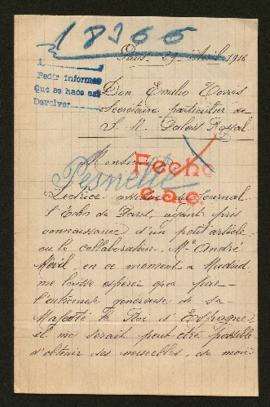 18366
Paris. 29 Avril 1916
1
Pedir informes
Que se hace saber
Devolver
Don Emilio Torres
Secrétaire particulier de
S. M. Palais Royal
Monsieur
Fecho
Pesnelle
e.a.c.
Lectrice assidue du Journal
l'Echo de Paris, ayant pris
connaissance d'un petit article
où le collaborateur, Mr André
en ce moment à Madrid,
me laisse espérer que par
l'entremise généreuse de Sa
Majesté le Roi d'Espagne,
il me serait peut être possible
d'obtenir des nouvelles, de mon